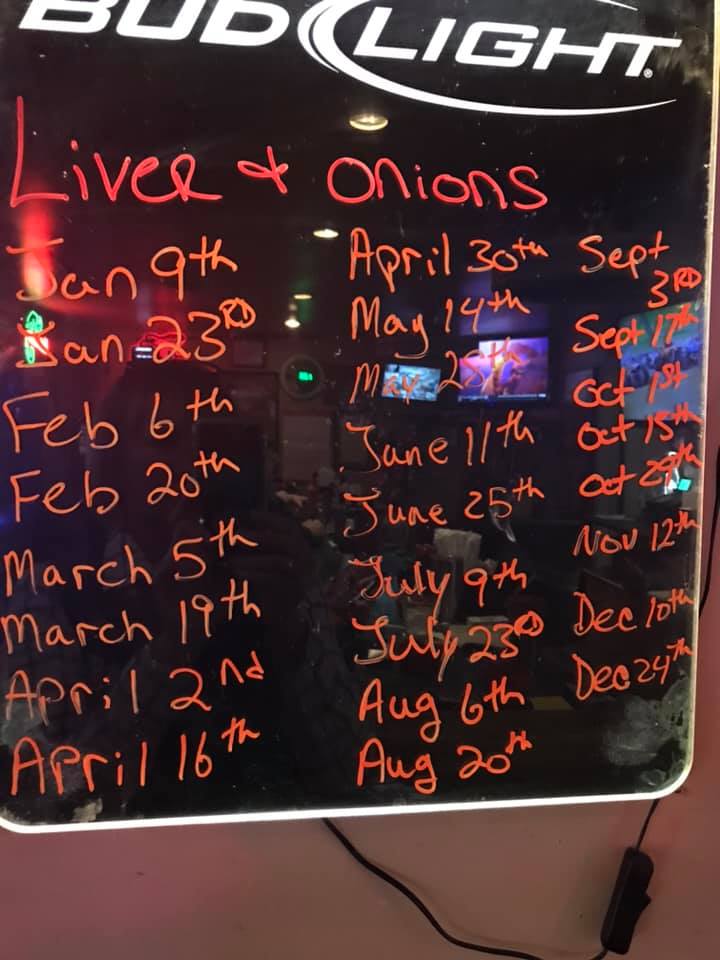 BUD LIGHT
Liver & onions
Jan 9th
Jan 23RD
Feb 6th
Feb 20th
March 5th
March 19th
April 2nd
April 16th
April 30th
May 14th
May 28th
June 11th
June 25th
July 9th
July 23RD
Aug 6th
Aug 20th
Sept
3RD
Sept 17th
Oct 1st
Oct 15th
Oct 29th
Nov 12th
Dec 10th
Dec 24th